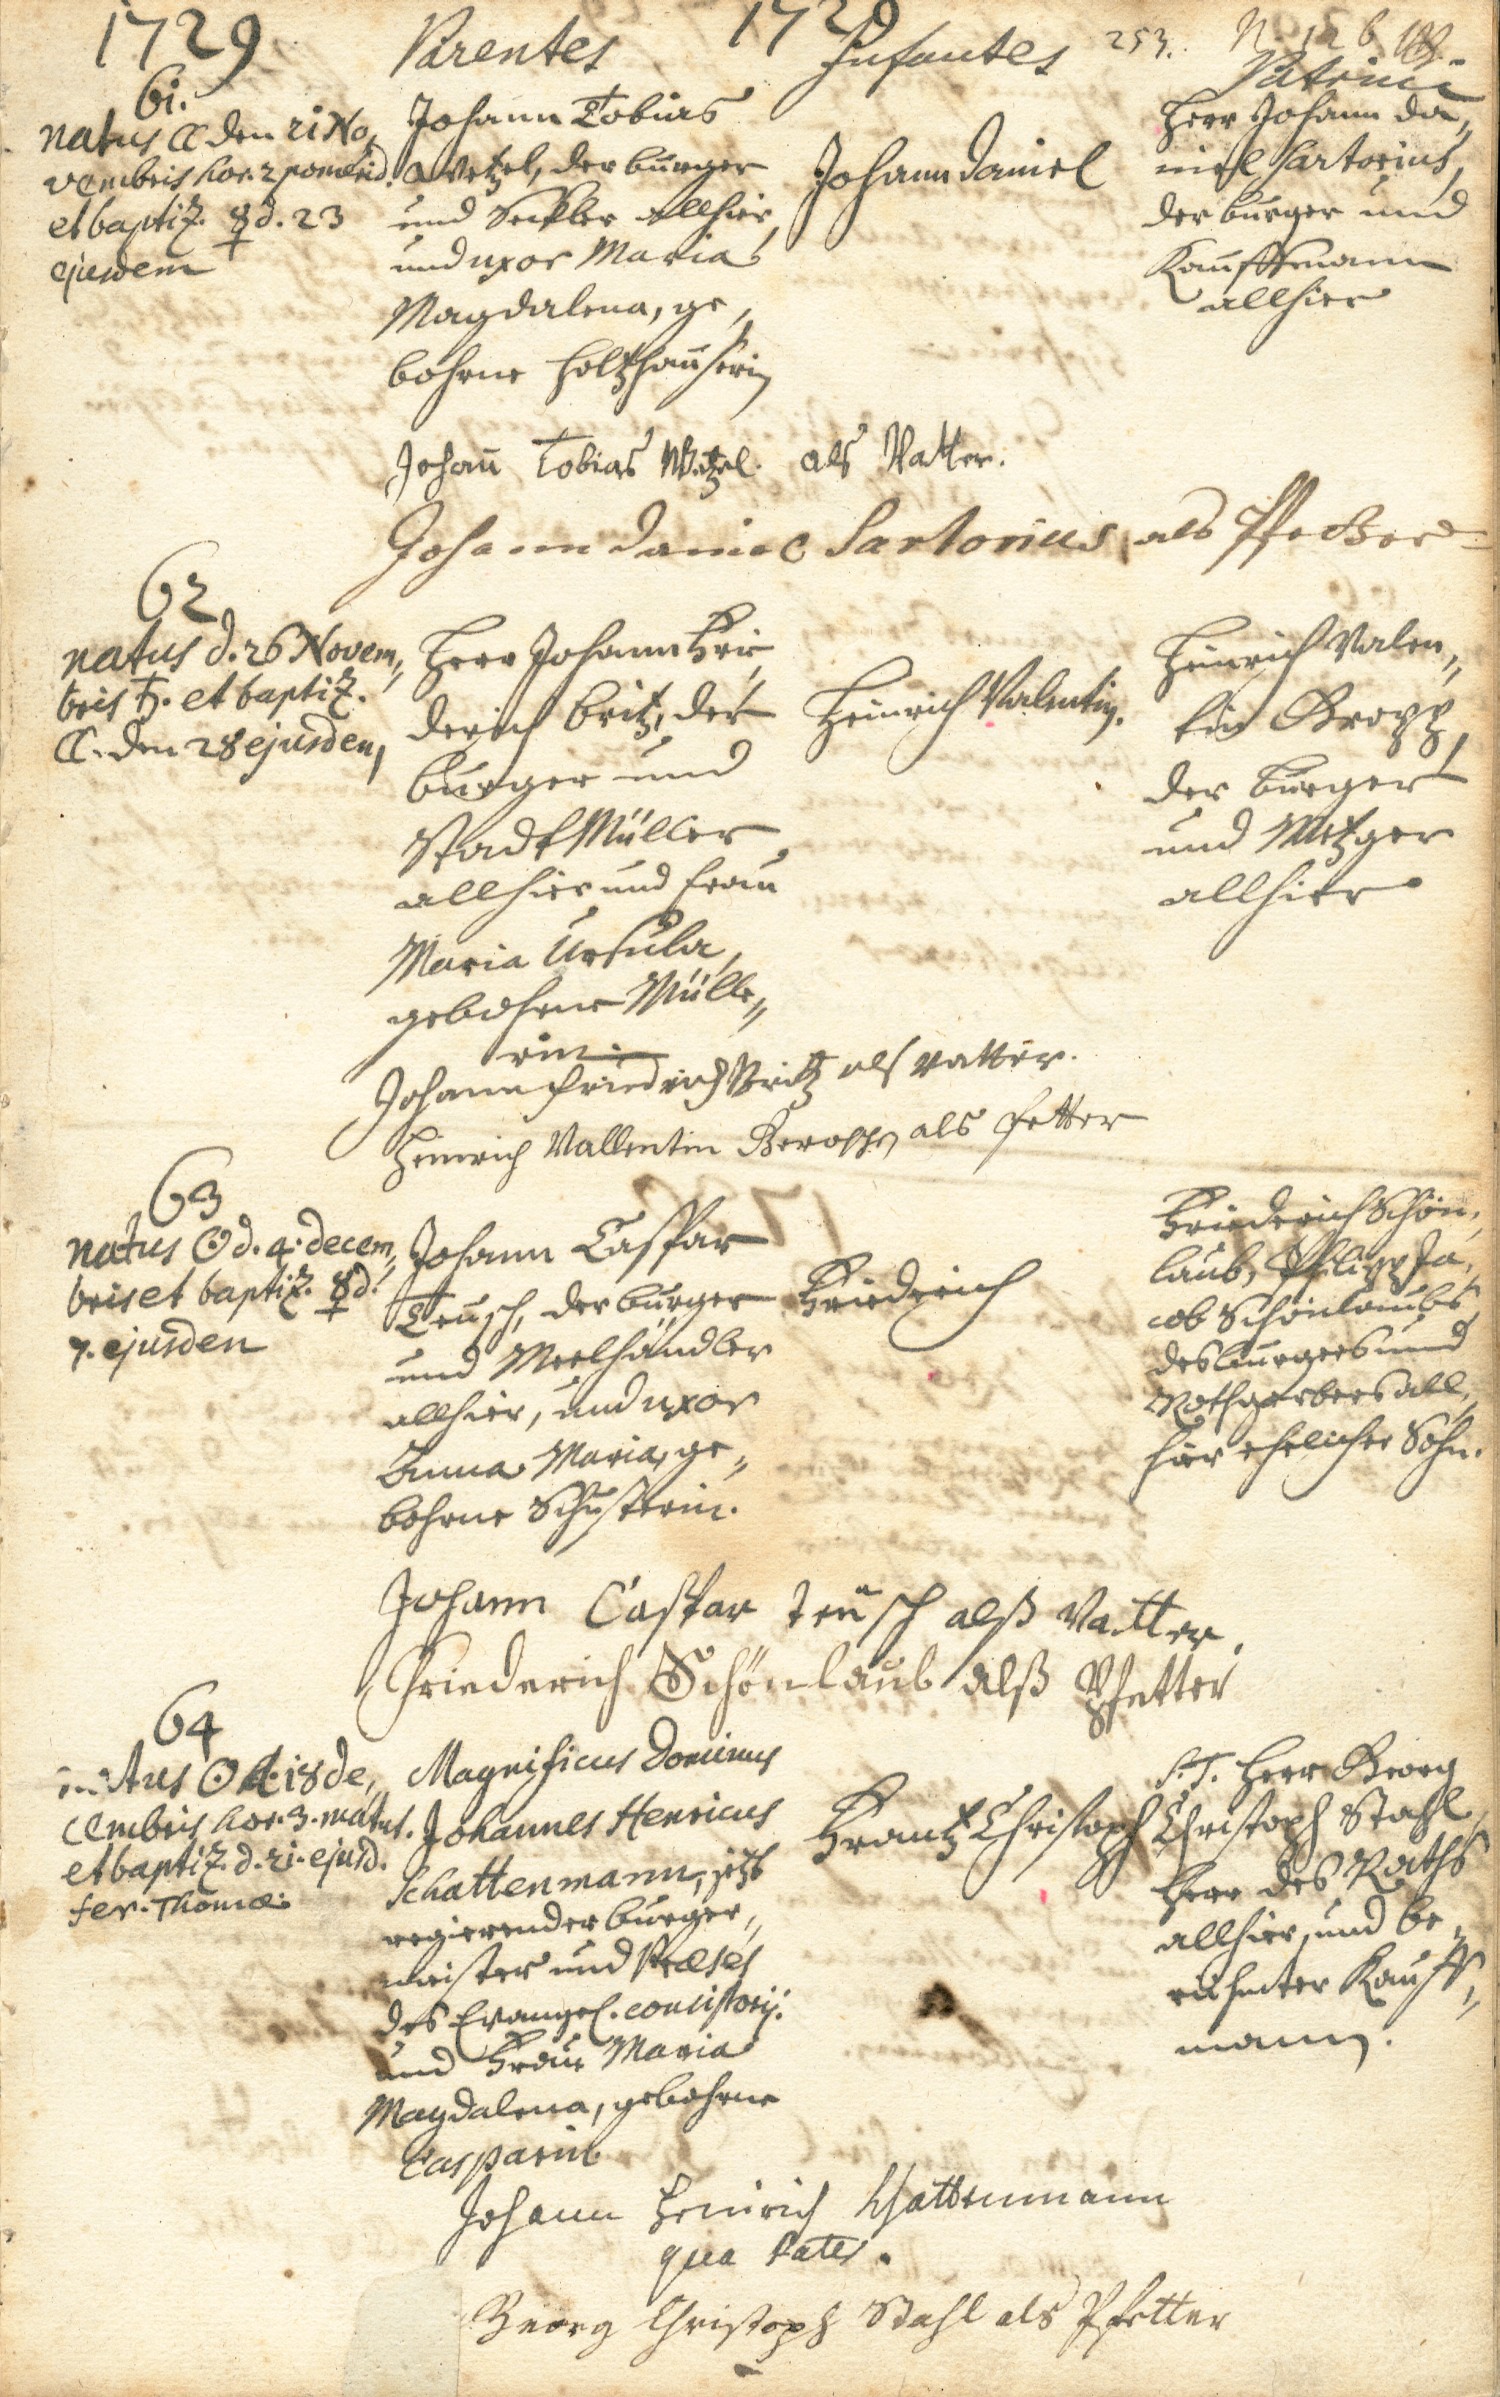 1729
Parentes
1729
Infantes
253.
Patrini
61.
natus ☾ den 21 No,
vembris hor. 2 pomerid.
et baptiz. ☿ d. 23
ejusdem
Johann Tobias
Wetzel, der burger
und Seckler allhier,
und uxor Maria
Magdalena, ge,
bohrne Holtzhaußerin
Johann Daniel
Herr Johann Da,,
niel Sartorius,
der burger und
Kauffmann
allhier
Johan̄ Tobias Wetzel. als Vatter.
Johann Daniel Sartorius, als Pfetter
62
natus d. 26 Novem,,
bris ♄. et baptiz.
☾. den 28 ejusdem,
Herr Johann Frie,
derich Britz, der
burger und
Stadt Müller
allhier und Frau
Maria Ursula,
gebohrne Mülle,,
rin.
Heinrich Valentin.
Heinrich Valen,,
tin Gropp,
der burger
und Metzger
allhier
Johann Friedrich Britz als Vatter.
Heinrich Vallentin Gropp als Petter
63
natus ☉ d. 4. decem,,
bris et baptiz. ☿ d.
7. ejusden
Johann Caspar
Teusch, der burger
und Meelhändler
allhier, und uxor
Anna Maria, ge,,
bohrne Schusterin.
Friedrich
Friederich Schön,
laub, Philipp Ja,
cob Schönlaubs
des burgers und
Rothgerbers all,,
hier ehelicher Sohn.
Johann Caspar Teusch alß Vatter,
Friederich Schönlaub alß Pfetter
64
natus ☉ d. 18 de,
cembris hor. 3. matut.
et baptiz. d. 21. ejusd.
fer. Thomæ.
Magnificus Dominus
Johannes Henricus
Schattenmann, jetzt
regierender burger,,
meister und Præses
des Evangel. consistorij.
und Frau Maria
Magdalena, gebohrne
Casparin.
Frantz Christoph
S. T. Herr Georg
Christoph Stahl,
Herr des Raths
allhier, und be,,
rühmter Kauff,,
mann.
Johann Heinrich Schattenmann
qua Pater.
Georg Christoph Stahl als Pfetter